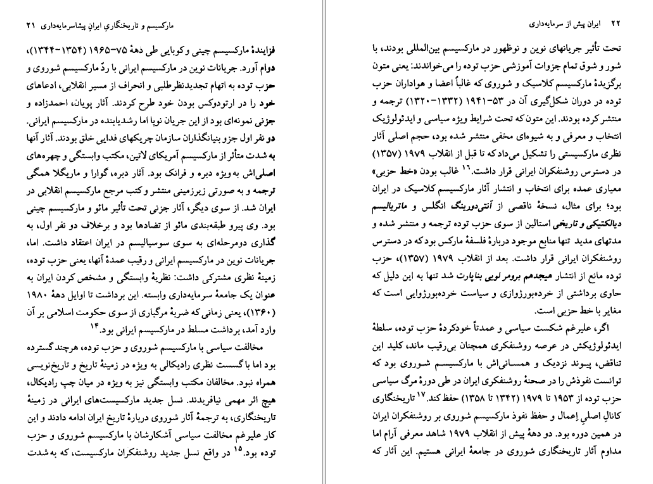 مارکسیسم و تاریخنگاری ایران پیشاسرمایه‌داری ۲۱
فزایندهٔ مارکسیسم چینی و کوبایی طی دههٔ ۷۵-۱۹۶۵ (۱۳۵۴-۱۳۴۴)،
دوام آورد. جریانات نوین در مارکسیسم ایرانی با ردّ مارکسیسم شوروی و
حزب توده به اتهام تجدیدنظرطلبی و انحراف از مسیر انقلابی، ادعاهای
خود را در ارتودوکس بودن خود طرح کردند. آثار پویان، احمدزاده و
جزنی نمونه‌ای بود از این جریان نوپا اما رشدیابنده در مارکسیسم ایرانی.
دو نفر اول جزو بنیانگذاران سازمان چریکهای فدایی خلق بودند. آثار آنها
به شدت متأثر از مارکسیسم آمریکای لاتین، مکتب وابستگی و چهره‌های
اصلی‌اش به ویژه دبره و فرانک بود. آثار دبره، گوارا و ماریگلا همگی
ترجمه و به صورتی زیرزمینی منتشر و کتب مرجع مارکسیسم انقلابی در
ایران شد. از سوی دیگر، آثار جزنی تحت تأثیر مائو و مارکسیسم چینی
بود. وی پیرو طبقه‌بندی مائو از تضادها بود و برخلاف دو نفر اول، به
گذاری دومرحله‌ای به سوی سوسیالیسم در ایران اعتقاد داشت. اما،
جریانات نوین در مارکسیسم ایرانی و رقیب عمدهٔ آنها، یعنی حزب توده،
زمینهٔ نظری مشترکی داشت: نظریهٔ وابستگی و مشخص کردن ایران به
عنوان یک جامعهٔ سرمایه‌داری وابسته. این برداشت تا اوایل دههٔ ۱۹۸۰
(۱۳۶۰)، یعنی زمانی که ضربهٔ مرگباری از سوی حکومت اسلامی بر آن
وارد آمد، برداشت مسلط در مارکسیسم ایرانی بود.۱۴
مخالفت سیاسی با مارکسیسم شوروی و حزب توده، هرچند گسترده
بود اما با گسست نظری رادیکالی به ویژه در زمینهٔ تاریخ و تاریخ‌نویسی
همراه نبود. مخالفان مکتب وابستگی نیز به ویژه در میان چپ رادیکال،
هیچ اثر مهمی نیافریدند. نسل جدید مارکسیست‌های ایرانی در زمینهٔ
تاریخنگاری، به ترجمهٔ آثار شوروی دربارهٔ تاریخ ایران ادامه دادند و این
کار علیرغم مخالفت سیاسی آشکارشان با مارکسیسم شوروی و حزب
توده بود.۱۵ در واقع نسل جدید روشنفکران مارکسیست، که به شدت
۲۲ ایران پیش از سرمایه‌داری
تحت تأثیر جریانهای نوین و نوظهور در مارکسیسم بین‌المللی بودند، با
شور و شوق تمام جزوات آموزشی حزب توده را می‌خواندند: یعنی متون
برگزیدهٔ مارکسیسم کلاسیک و شوروی که غالباً اعضا و هواداران حزب
توده در دوران شکل‌گیری آن در ۵۳-۱۹۴۱ (۱۳۳۲-۱۳۲۰) ترجمه و
منتشر کرده بودند. این متون که تحت شرایط ویژه سیاسی و ایدئولوژیک
انتخاب و معرفی و به شیوه‌ای مخفی منتشر شده بود، حجم اصلی آثار
نظری مارکسیستی را تشکیل می‌داد که تا قبل از انقلاب ۱۹۷۹ (۱۳۵۷)
در دسترس روشنفکران ایرانی قرار داشت.۱۶ غالب بودن «خط حزبی»
معیاری عمده برای انتخاب و انتشار آثار مارکسیسم کلاسیک در ایران
بود؛ برای مثال، نسخهٔ ناقصی از آنتی‌دورینگ انگلس و ماتریالیسم
دیالکتیکی و تاریخی استالین از سوی حزب توده ترجمه و منتشر شده و
مدتهای مدید تنها منابع موجود دربارهٔ فلسفهٔ مارکس بود که در دسترس
روشنفکران ایرانی قرار داشت. بعد از انقلاب ۱۹۷۹ (۱۳۵۷)، حزب
توده مانع از انتشار هیجدهم برومر لویی بناپارت شد تنها به این دلیل که
حاوی برداشتی از خرده‌بورژوازی و سیاست خرده‌بورژوایی است که
مغایر با خط حزبی است.
اگر، علیرغم شکست سیاسی و عمدتاً خودکردهٔ حزب توده، سلطهٔ
ایدئولوژیکش در عرصه روشنفکری همچنان بی‌رقیب ماند، کلید این
تناقض، پیوند نزدیک و همسانی‌اش با مارکسیسم شوروی بود که
توانست نفوذش را در صحنهٔ روشنفکری ایران در طی دورهٔ مرگ سیاسی
حزب توده از ۱۹۵۳ تا ۱۹۷۹ (۱۳۴۲ تا ۱۳۵۸) حفظ کند.۱۷ تاریخنگاری
کانال اصلی اِعمال و حفظ نفوذ مارکسیسم شوروی بر روشنفکران ایران
در همین دوره بود. دو دههٔ پیش از انقلاب ۱۹۷۹ شاهد معرفی آرام اما
مداوم آثار تاریخنگاری شوروی در جامعهٔ ایرانی هستیم. این آثار که